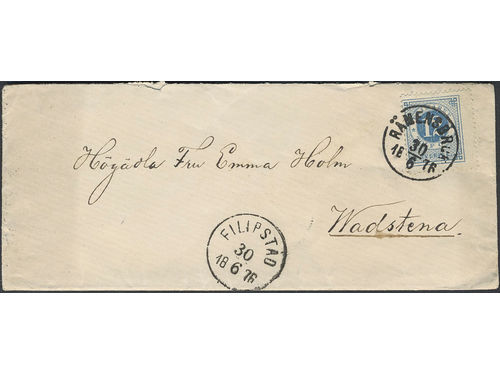 RÄMENSBRUK
30
18 6 76
Högädla Fru Emma Holm
Wadstena.
FILIPSTAD
30
18 6 76